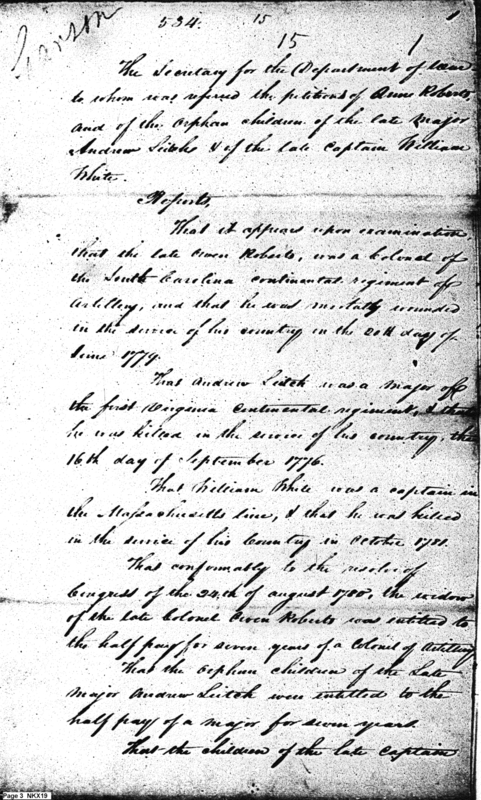 534. 15
1
15 1
The Secretary for the Department of War
to whom was referred the petitions of Anne Roberts,
and of the orphan children of the late Major
Andrew Leitch & of the late Captain William
White.
Reports,
That it appears upon examination,
that the late Owen Roberts, was a Colonel of
the South Carolina continental regiment of
Artillery, and that he was mortally wounded
in the service of his country on the 20th day of
June 1779.
That Andrew Leitch was a Major of
the first Virginia Continental regiment, & that
he was killed in the service of his country, the
16th day of September 1776.
That William White was a captain in
the Massachusetts line, & that he was killed
in the service of his Country in October 1781.
That conformably to the resolve of
Congress of the 24th of august 1780, the widow
of the late Colonel Owen Roberts was entitled to
the half pay for seven years of a Colonel of Artillery
That the orphan children of the Late
Major Andrew Leitch were entitled to the
half pay of a Major for seven years.
That the children of the late Captain
Page 3 NKX19